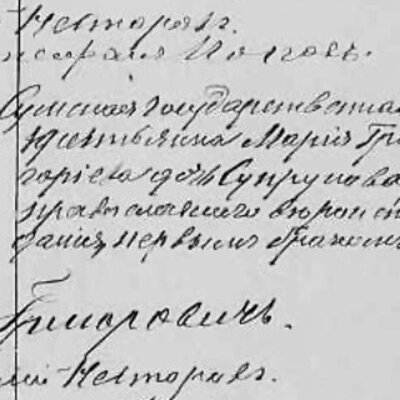 Несторовъ.
Сумская государственная
крестьянка Марія Гри
горіева дочь Супрунова
православнаго вѣроисп
данія, первымъ бракомъ
Несторовъ.